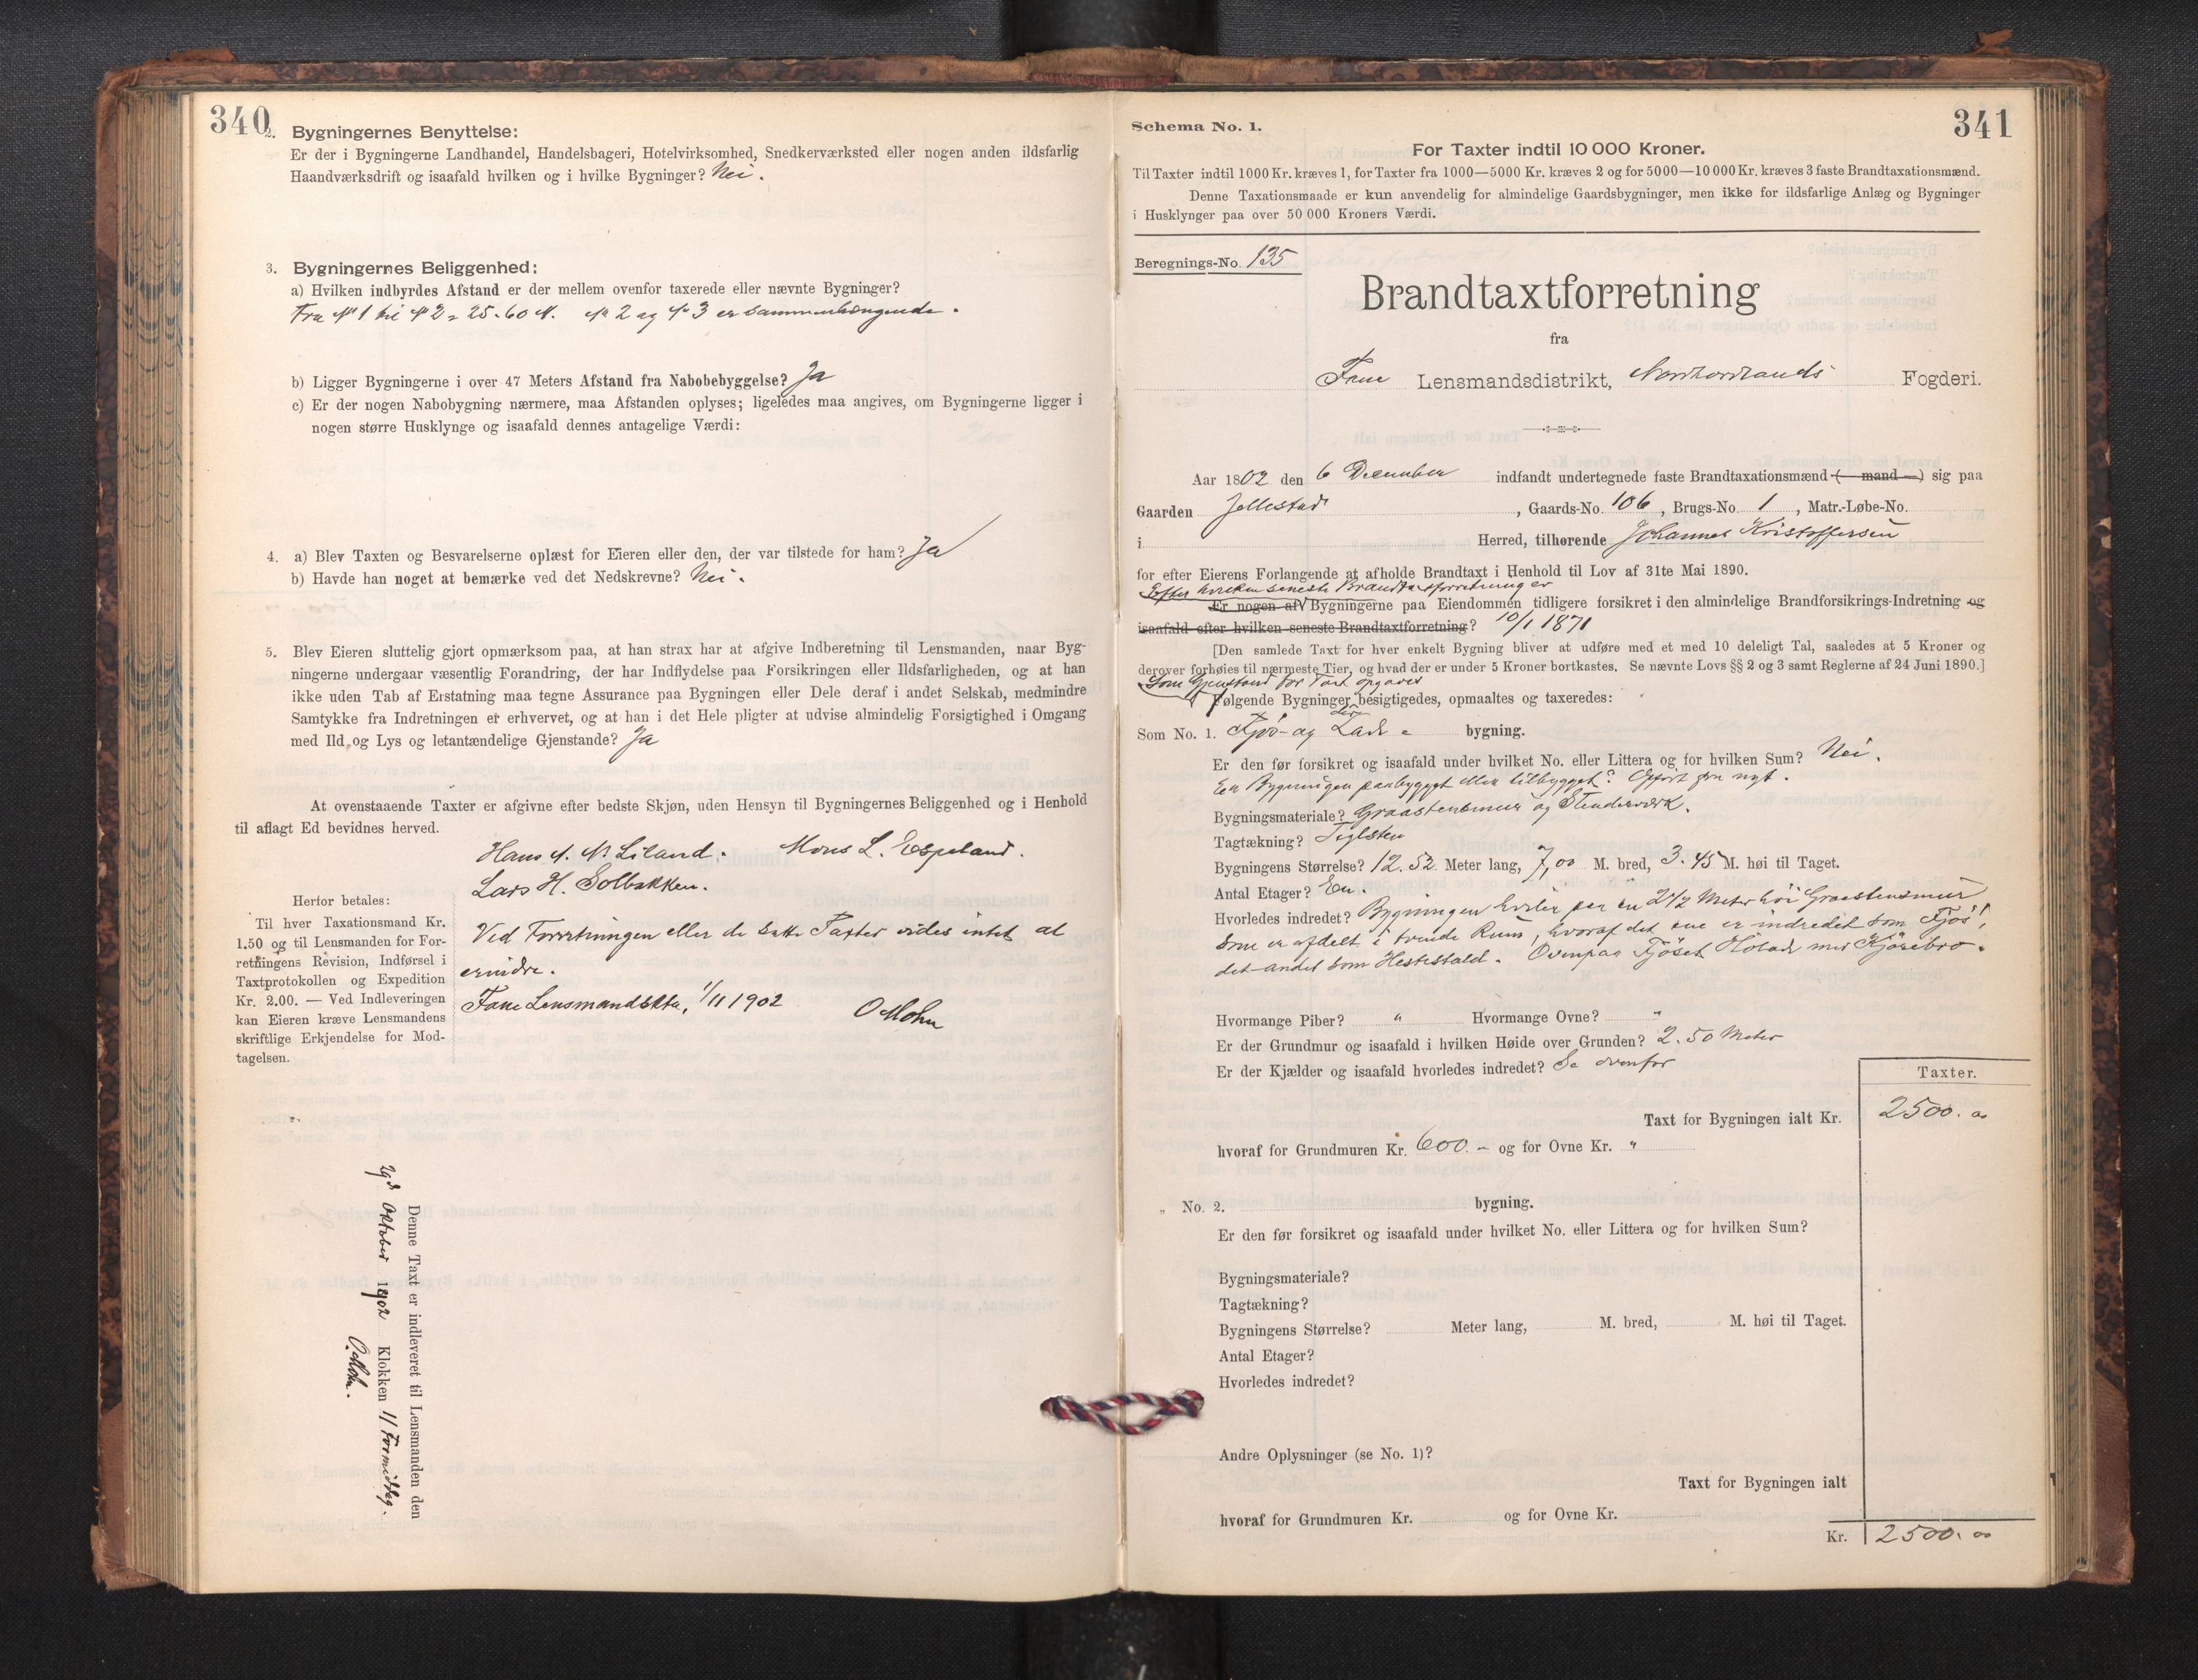 340
2. Bygningernes Benyttelse:
Er der i Bygningerne Landhandel, Handelsbageri, Hotelvirksomhed, Snedkerværksted eller nogen anden ildsfarlig
Haandværksdrift og isaafald hvilken og i hvilke Bygninger? Nei.
3. Bygningernes Beliggenhed:
a) Hvilken indbyrdes Afstand er der mellem ovenfor taxerede eller nævnte Bygninger?
Fra № 1 til № 2 = 25.60 M. № 2 og № 3 er sammenhængende.
b) Ligger Bygningerne i over 47 Meters Afstand fra Nabobebyggelse? Ja
c) Er der nogen Nabobygning nærmere, maa Afstanden oplyses; ligeledes maa angives, om Bygningerne ligger i
nogen større Husklynge og isaafald dennes antagelige Værdi:
4. a) Blev Taxten og Besvarelserne oplæst for Eieren eller den, der var tilstede for ham? Ja
b) Havde han noget at bemærke ved det Nedskrevne? Nei.
5. Blev Eieren sluttelig gjort opmærksom paa, at han strax har at afgive Indberetning til Lensmanden, naar Byg-
ningerne undergaar væsentlig Forandring, der har Indflydelse paa Forsikringen eller Ildsfarligheden, og at han
ikke uden Tab af Erstatning maa tegne Assurance paa Bygningen eller Dele deraf i andet Selskab, medmindre
Samtykke fra Indretningen er erhvervet, og at han i det Hele pligter at udvise almindelig Forsigtighed i Omgang
med Ild og Lys og letantændelige Gjenstande? Ja
At ovenstaaende Taxter er afgivne efter bedste Skjøn, uden Hensyn til Bygningernes Beliggenhed og i Henhold
til aflagt Ed bevidnes herved.
Hans A. N. Liland. Mons L. Espeland.
Lars H. Solbakken.
Herfor betales:
Til hver Taxationsmand Kr.
1.50 og til Lensmanden for For-
retningens Revision, Indførsel i
Taxtprotokollen og Expedition
Kr. 2.00. — Ved Indleveringen
kan Eieren kræve Lensmandens
skriftlige Erkjendelse for Mod-
tagelsen.
Ved Forretningen eller de satte Taxter vides intet at
erindre.
Fane Lensmandsktr, 1/11 1902 O Mohn
Denne Taxt er indleveret til Lensmanden den
29d Oktober 1902 Klokken 11 Formiddag.
O. Mohn.
341
Schema No. 1.
For Taxter indtil 10 000 Kroner.
Til Taxter indtil 1000 Kr. kræves 1, for Taxter fra 1000—5000 Kr. kræves 2 og for 5000—10 000 Kr. kræves 3 faste Brandtaxationsmænd.
Denne Taxationsmaade er kun anvendelig for almindelige Gaardsbygninger, men ikke for ildsfarlige Anlæg og Bygninger
i Husklynger paa over 50 000 Kroners Værdi.
Beregnings-No. 135
Brandtaxtforretning
fra
Fane Lensmandsdistrikt, Nordhordlands Fogderi.
Aar 1802 den 6 December indfandt undertegnede faste Brandtaxationsmænd (— mand —) sig paa
Gaarden Jellestad, Gaards-No. 106, Brugs-No. 1, Matr.-Løbe-No.
i Herred, tilhørende Johannes Kristoffersen
for efter Eierens Forlangende at afholde Brandtaxt i Henhold til Lov af 31te Mai 1890.
Efter hvilken seneste Brandtaxtforretning er
Er nogen af Bygningerne paa Eiendommen tidligere forsikret i den almindelige Brandforsikrings-Indretning og
isaafald efter hvilken seneste Brandtaxtforretning? 10/1 1871
[Den samlede Taxt for hver enkelt Bygning bliver at udføre med et med 10 deleligt Tal, saaledes at 5 Kroner og
derover forhøies til nærmeste Tier, og hvad der er under 5 Kroner bortkastes. Se nævnte Lovs §§ 2 og 3 samt Reglerne af 24 Juni 1890.]
Som Gjenstand for Taxt opgaves
Følgende Bygninger, der besigtigedes, opmaaltes og taxeredes:
Som No. 1. Fjøs- og Lade- bygning.
Er den før forsikret og isaafald under hvilket No. eller Littera og for hvilken Sum? Nei.
Er Bygningen paabygget eller tilbygget? Opført fra nyt.
Bygningsmateriale? Graastensmur og Stenderværk.
Tagtækning? Teglsten
Bygningens Størrelse? 12.52 Meter lang, 7,00 M. bred, 3.45 M. høi til Taget.
Antal Etager? En.
Hvorledes indredet? Bygningen hviler paa en 2 1/2 Meter høi Graastensmur
som er afdelt i tvende Rum, hvoraf det ene er indredet som Fjøs,
det andet som Hestestald. Ovenpaa Fjøset Hølade med Kjørebro.
Hvormange Piber? " Hvormange Ovne? "
Er der Grundmur og isaafald i hvilken Høide over Grunden? 2.50 Meter
Er der Kjælder og isaafald hvorledes indredet? Se ovenfor
Taxter.
Taxt for Bygningen ialt Kr. 2500.00
hvoraf for Grundmuren Kr. 600.- og for Ovne Kr. "
„ No. 2. bygning.
Er den før forsikret og isaafald under hvilket No. eller Littera og for hvilken Sum?
Bygningsmateriale?
Tagtækning?
Bygningens Størrelse? Meter lang, M. bred, M. høi til Taget.
Antal Etager?
Hvorledes indredet?
Andre Oplysninger (se No. 1)?
Taxt for Bygningen ialt
hvoraf for Grundmuren Kr. og for Ovne Kr.
Kr. 2500.00